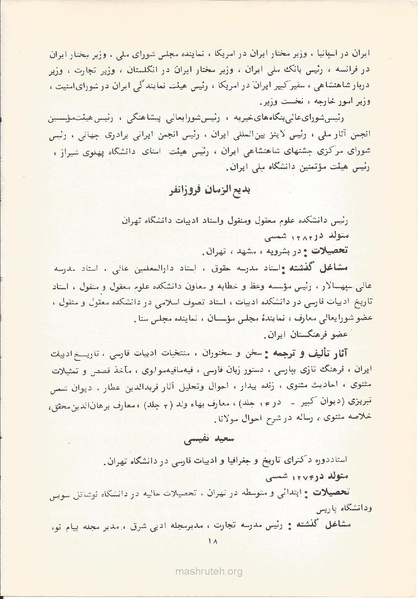 ایران در اسپانیا ، وزیر مختار ایران در امریکا ، نماینده مجلس شورای ملی ، وزیر مختار ایران
در فرانسه ، رئیس بانک ملی ایران ، وزیر مختار ایران در انگلستان ، وزیر تجارت ، وزیر
دربار شاهنشاهی ، سفیر کبیر ایران در امریکا ، رئیس هیئت نمایندگی ایران در شورای امنیت ،
وزیر امور خارجه ، نخست وزیر.
رئیس شورای عالی بنگاه‌های خیریه ، رئیس شورایعالی پیشاهنگی ، رئیس هیئت مؤسسین
انجمن آثار ملی ، رئیس لاینز بین‌المللی ایران ، رئیس انجمن ایرانی برادری جهانی ، رئیس
شورای مرکزی جشنهای شاهنشاهی ایران ، رئیس هیئت امنای دانشگاه پهلوی شیراز ،
رئیس هیئت مؤتمنین دانشگاه ملی ایران.
بدیع الزمان فروزانفر
رئیس دانشکده علوم معقول ومنقول واستاد ادبیات دانشگاه تهران
متولد در ۱۲۸۲ شمسی
تحصیلات : در بشرویه ، مشهد ، تهران.
مشاغل گذشته : استاد مدرسه حقوق ، استاد دارالمعلمین عالی ، استاد مدرسه
عالی سپهسالار ، رئیس مؤسسه وعظ و خطابه و معاون دانشکده علوم معقول و منقول ، استاد
تاریخ ادبیات فارسی در دانشکده ادبیات ، استاد تصوف اسلامی در دانشکده معقول و منقول ،
عضو شورایعالی معارف ، نمایندهٔ مجلس مؤسسان ، نماینده مجلس سنا.
عضو فرهنگستان ایران.
آثار تألیف و ترجمه : سخن و سخنوران ، منتخبات ادبیات فارسی ، تاریخ ادبیات
ایران ، فرهنگ تازی بپارسی ، دستور زبان فارسی ، فیه‌مافیه‌مولوی ، مآخذ قصص و تمثیلات
مثنوی ، احادیث مثنوی ، زنده بیدار ، احوال وتحلیل آثار فریدالدین عطار ، دیوان شمس
تبریزی (دیوان کبیر - در ۱۴ جلد) ، معارف بهاء ولد (۲ جلد) ، معارف برهان‌الدین‌محقق ،
خلاصه مثنوی ، رساله در شرح احوال مولانا.
سعید نفیسی
استاددوره دکترای تاریخ و جغرافیا و ادبیات فارسی در دانشگاه تهران.
متولد در ۱۲۷۴ شمسی
تحصیلات : ابتدائی و متوسطه در تهران ، تحصیلات عالیه در دانشگاه نوشاتل سویس
ودانشگاه پاریس
مشاغل گذشته : رئیس مدرسه تجارت ، مدیرمجله ادبی شرق ، مدیر مجله پیام نو،
۱۸
mashruteh.org